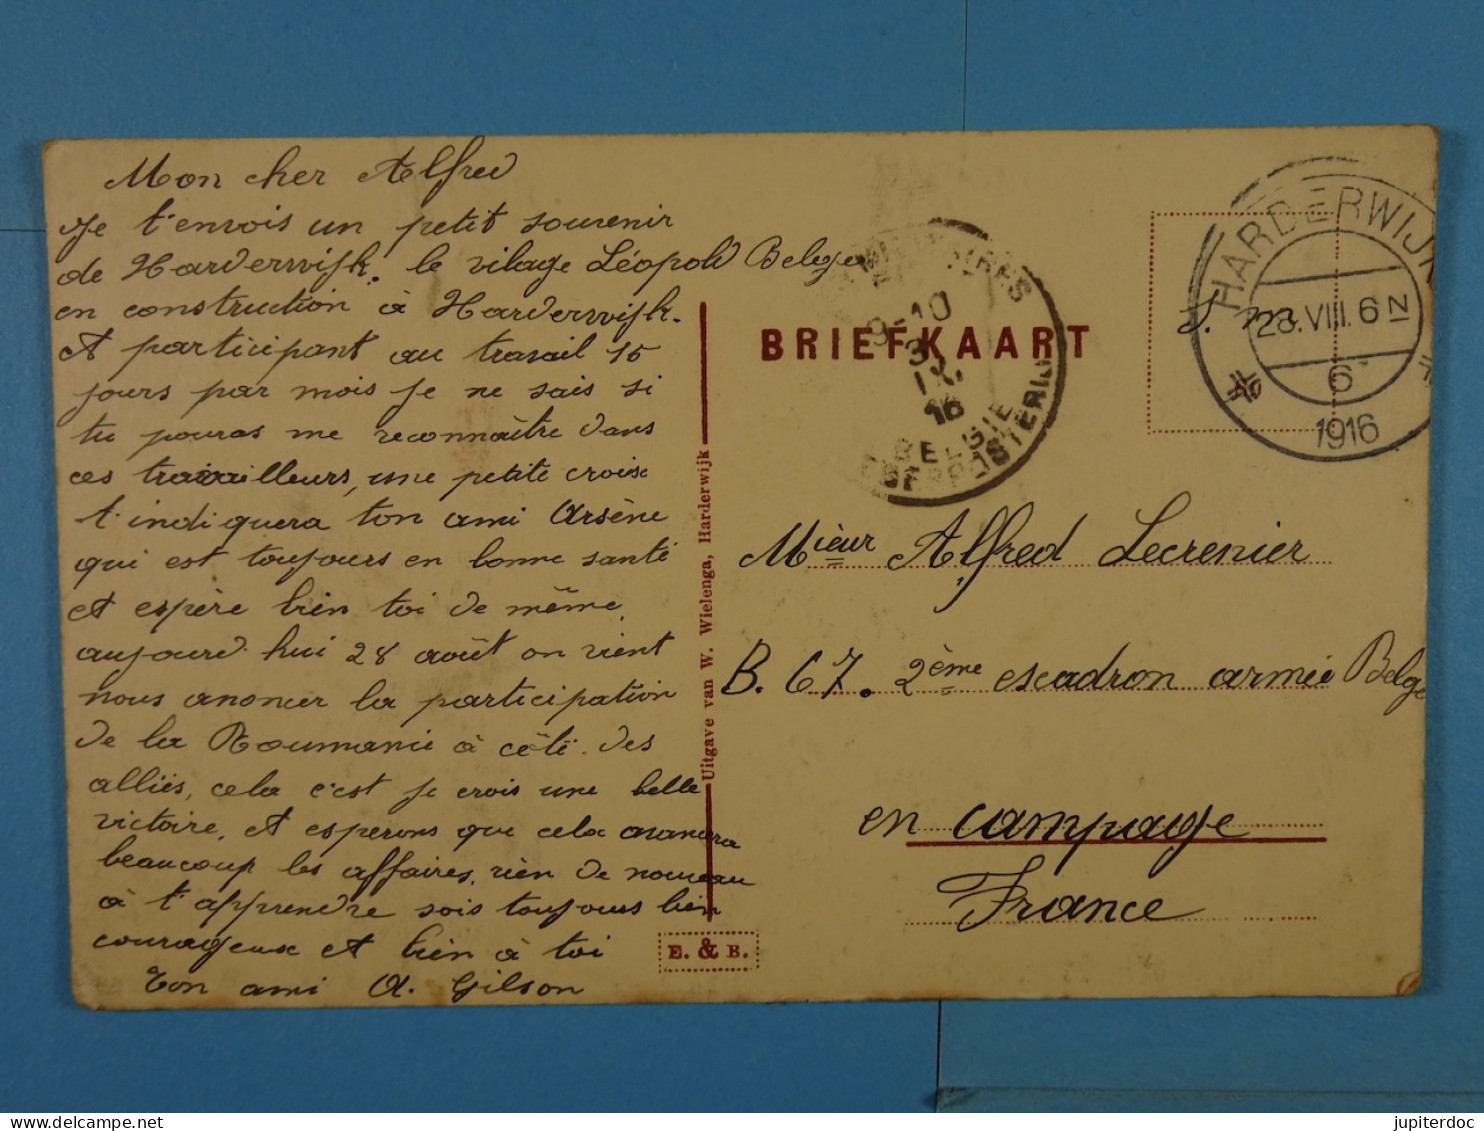 Mon cher Alfred
Je t'envois un petit souvenir
de Harderwijk. le vilage Léopold Belge
en construction à Harderwijk.
Et participant au travail 15
jours par mois je ne sais si
tu pouras me reconnaître dans
ces travailleurs, une petite croise
t'indiquera ton ami Arsène
qui est toujours en bonne santé
et espère bien toi de même,
aujourd'hui 28 août on vient
nous anoncer la participation
de la Roumanie à côté des
alliés, cela c'est je crois une belle
victoire, et esperons que cela avancera
beaucoup les affaires, rien de nouveau
à t'apprendre sois toujours bien
courageux et bien à toi
Ton ami A. Gilson
Uitgave van W. Wielenga, Harderwijk
E. & B.
BRIEFKAART
9-10
3
IX
16
BELGIE
HARDERWIJK
28.VIII.6 N
6
1916
S. m
Mieur Alfred Lecrenier
B. 67. 2ème escadron armée Belge
en campagne
France
jupiterdoc